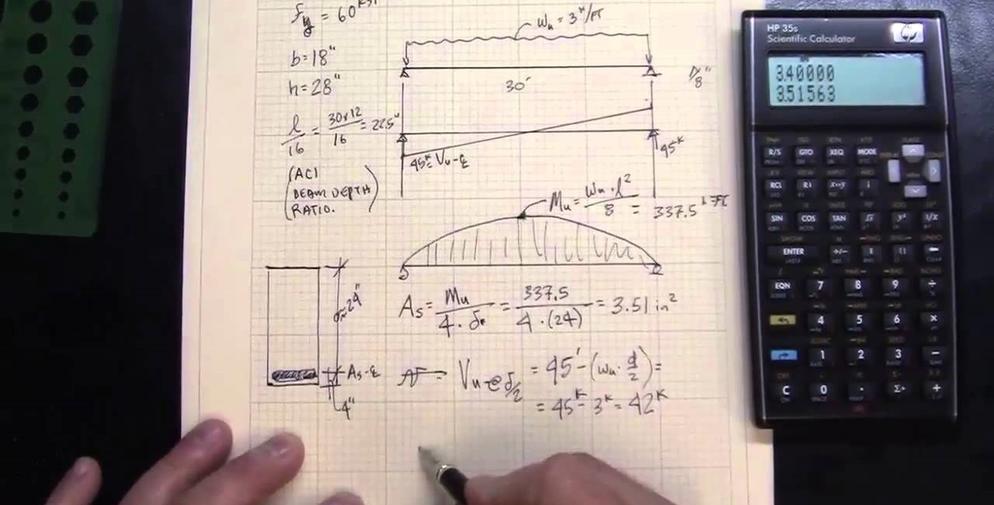 fy = 60 KSI
b = 18"
h = 28"
l/16 = 30x12/16 = 22.5"
(ACI
BEAM DEPTH
RATIO.
wu = 3 K/FT
30'
45K = Vu-E
45K
Mu = wu · l²/8 = 337.5 K-FT
d≈24"
As-E
4"
As = Mu/4·d = 337.5/4·(24) = 3.51 in²
Vu@d/2 = 45' - (wu · d/2) =
= 45K - 3K = 42K
HP 35s
Scientific Calculator
hp
3.40000
3.51563
R/S GTO XEQ MODE
RCL R↓ x↔y i
SIN COS TAN √x yˣ 1/x
ENTER +/- E ( )
EQN 7 8 9 ÷
4 5 6 ×
1 2 3 -
C 0 . Σ+ +